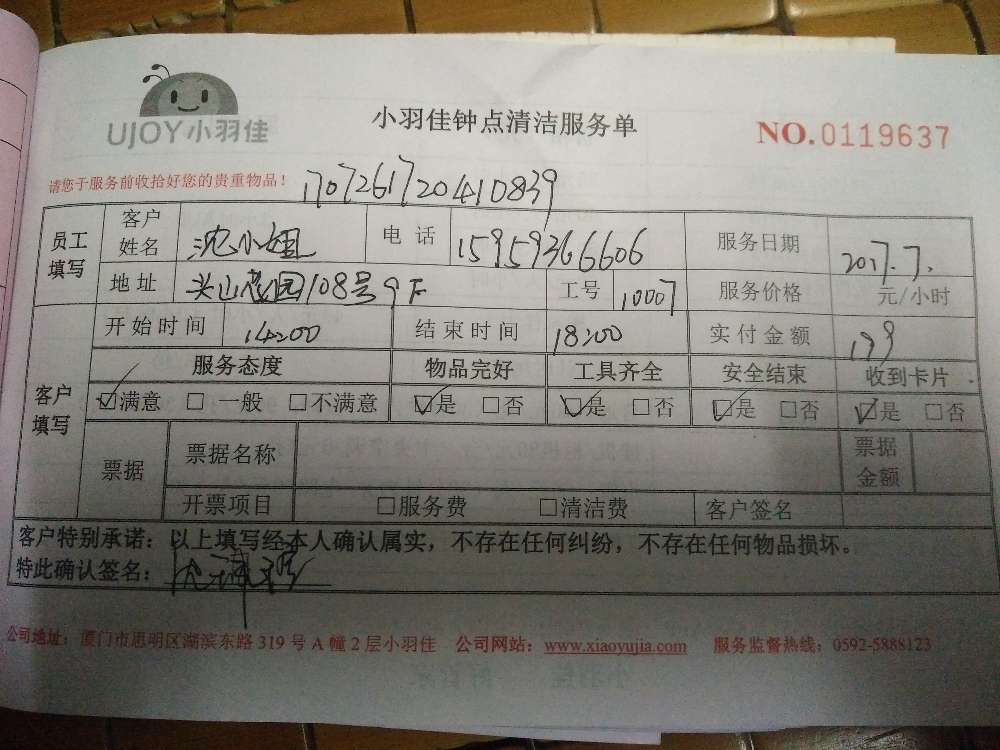 UJOY小羽佳
小羽佳钟点清洁服务单
NO.0119637
请您于服务前收拾好您的贵重物品！
1707261720410839
员工填写 客户姓名 沈小姐 电话 15959366606 服务日期 2017.7.
地址 108号9F 工号 10007 服务价格 元/小时
客户填写 开始时间 14:00 结束时间 18:00 实付金额 199
服务态度 物品完好 工具齐全 安全结束 收到卡片
☑满意 □一般 □不满意 ☑是 □否 ☑是 □否 ☑是 □否 ☑是 □否
票据 票据名称 票据金额
开票项目 □服务费 □清洁费 客户签名
客户特别承诺：以上填写经本人确认属实，不存在任何纠纷，不存在任何物品损坏。
特此确认签名：
公司地址：厦门市思明区湖滨东路 319 号 A 幢 2 层小羽佳 公司网站：www.xiaoyujia.com 服务监督热线：0592-5888123